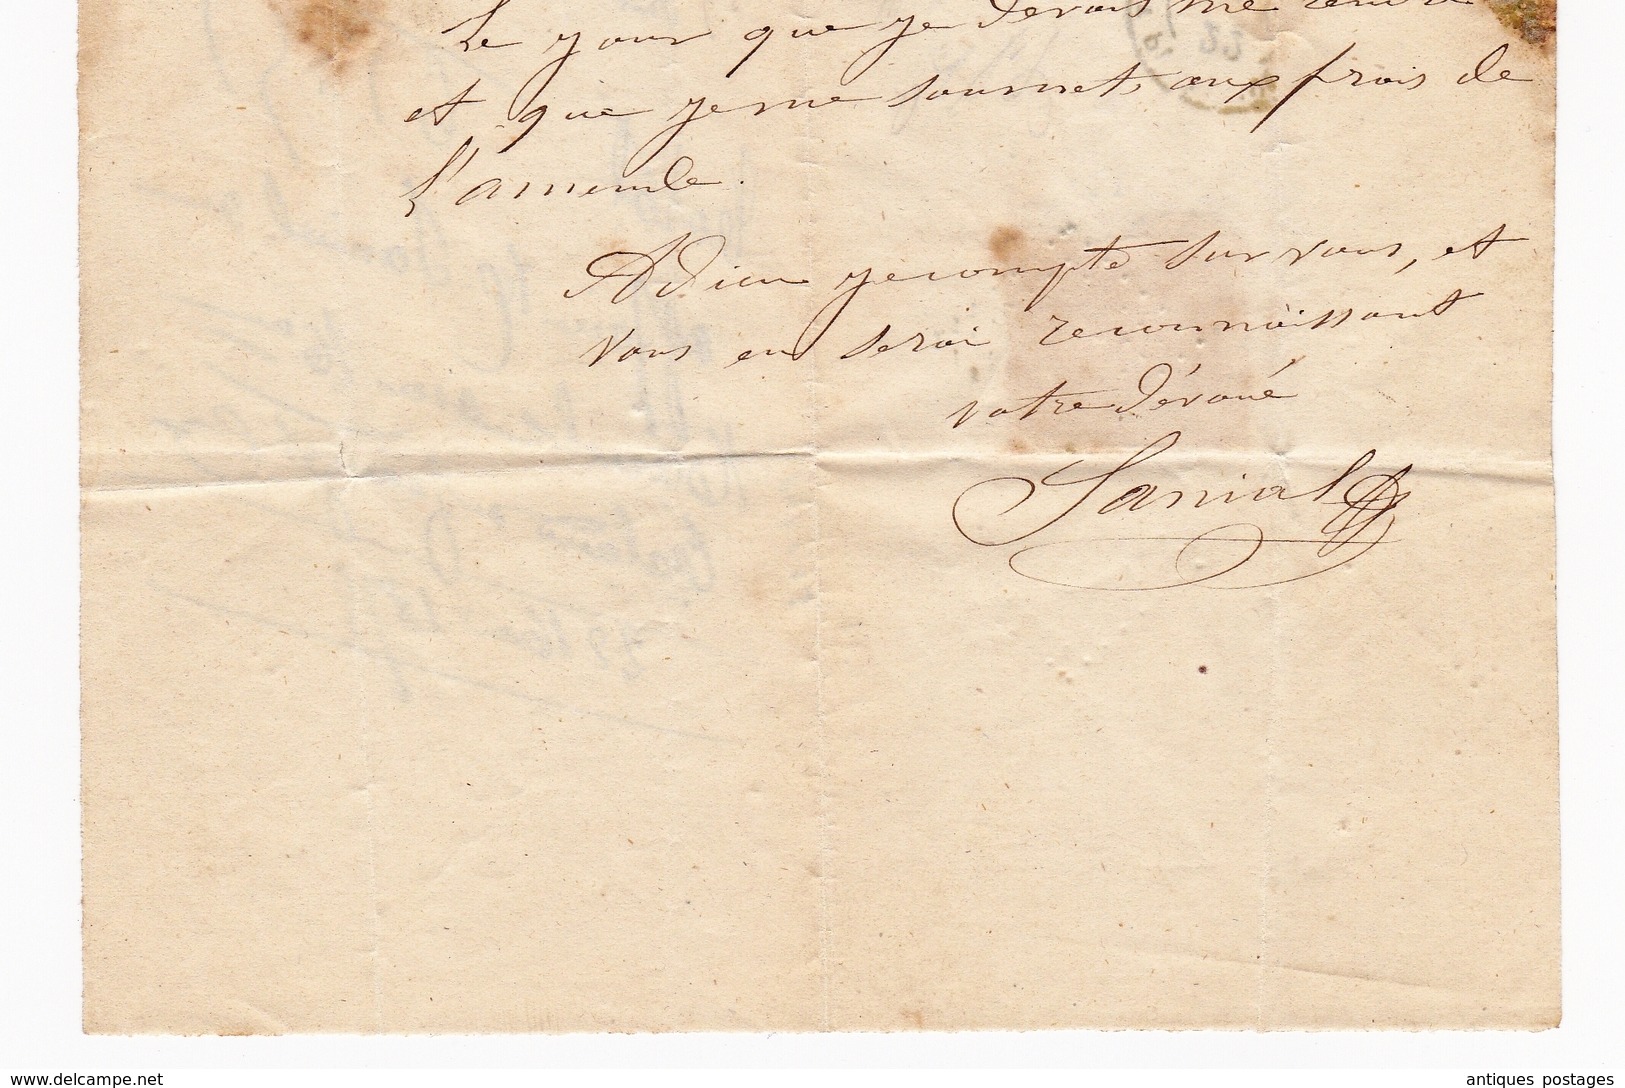 Le your que je devais me rendre
et que je me soumets aux frais de
l'amende.
Adieu je compte sur vous, et
vous en serai reconnaissant
votre dévoué
Sanial
www.delcampe.net
antiques postages